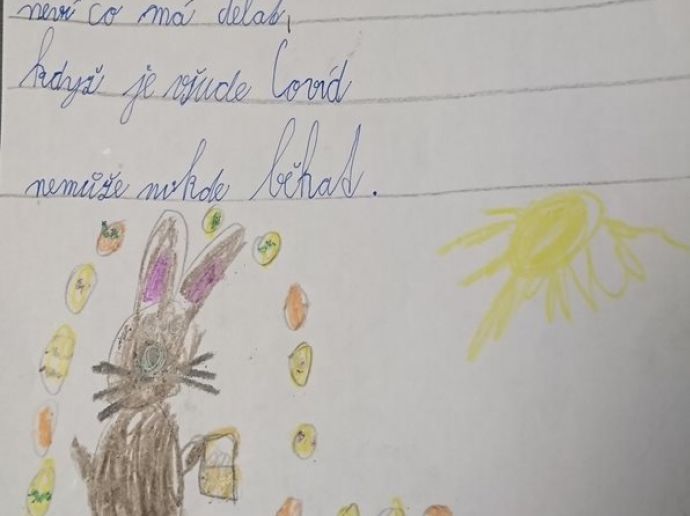 neví co má dělat,
když je všude Covid
nemůže nikde běhat.